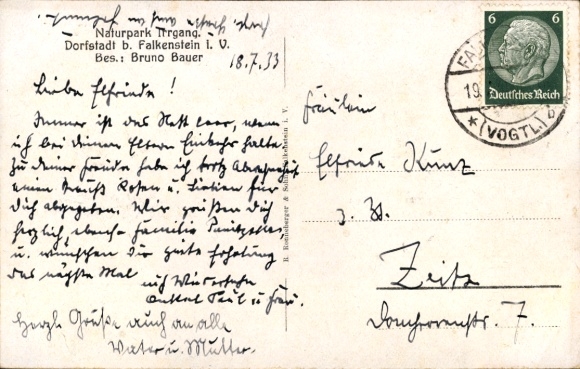 Naturpark Irrgang.
Dorfstadt b. Falkenstein i. V.
Bes.: Bruno Bauer
18.7.33
Liebe Elfriede!
Immer ist das Nest leer, wenn
ich bei deinen Eltern Einkehr halte.
Zu deiner Freude habe ich trotz Abwesenheit
einen Strauß Rosen u. für
Dich abgegeben. Wir grüßen Dich
herzlich ebenso Familie
u. wünschen Dir gute Erholung
das nächste Mal
auf Wiedersehn
Onkel Paul u. Frau.
Herzl. Grüße auch an alle
Vater u. Mutter.
R. Falkenstein i. V.
6 6
Deutsches Reich
19.
(VOGTL) b
Fräulein
Elfriede Kunz
z. Zt.
Zeitz
Domherrenstr. 7.